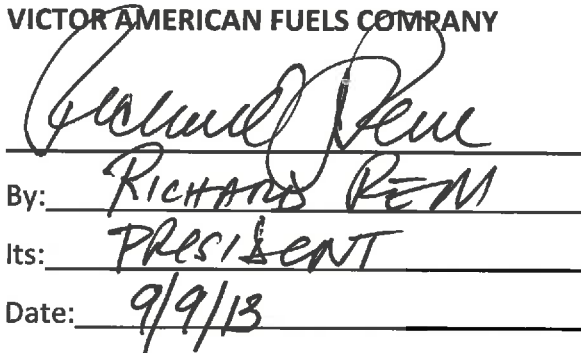 VICTOR AMERICAN FUELS COMPANY
Richard
By: RICHARD REM
Its: PRESIDENT
Date: 9/9/13